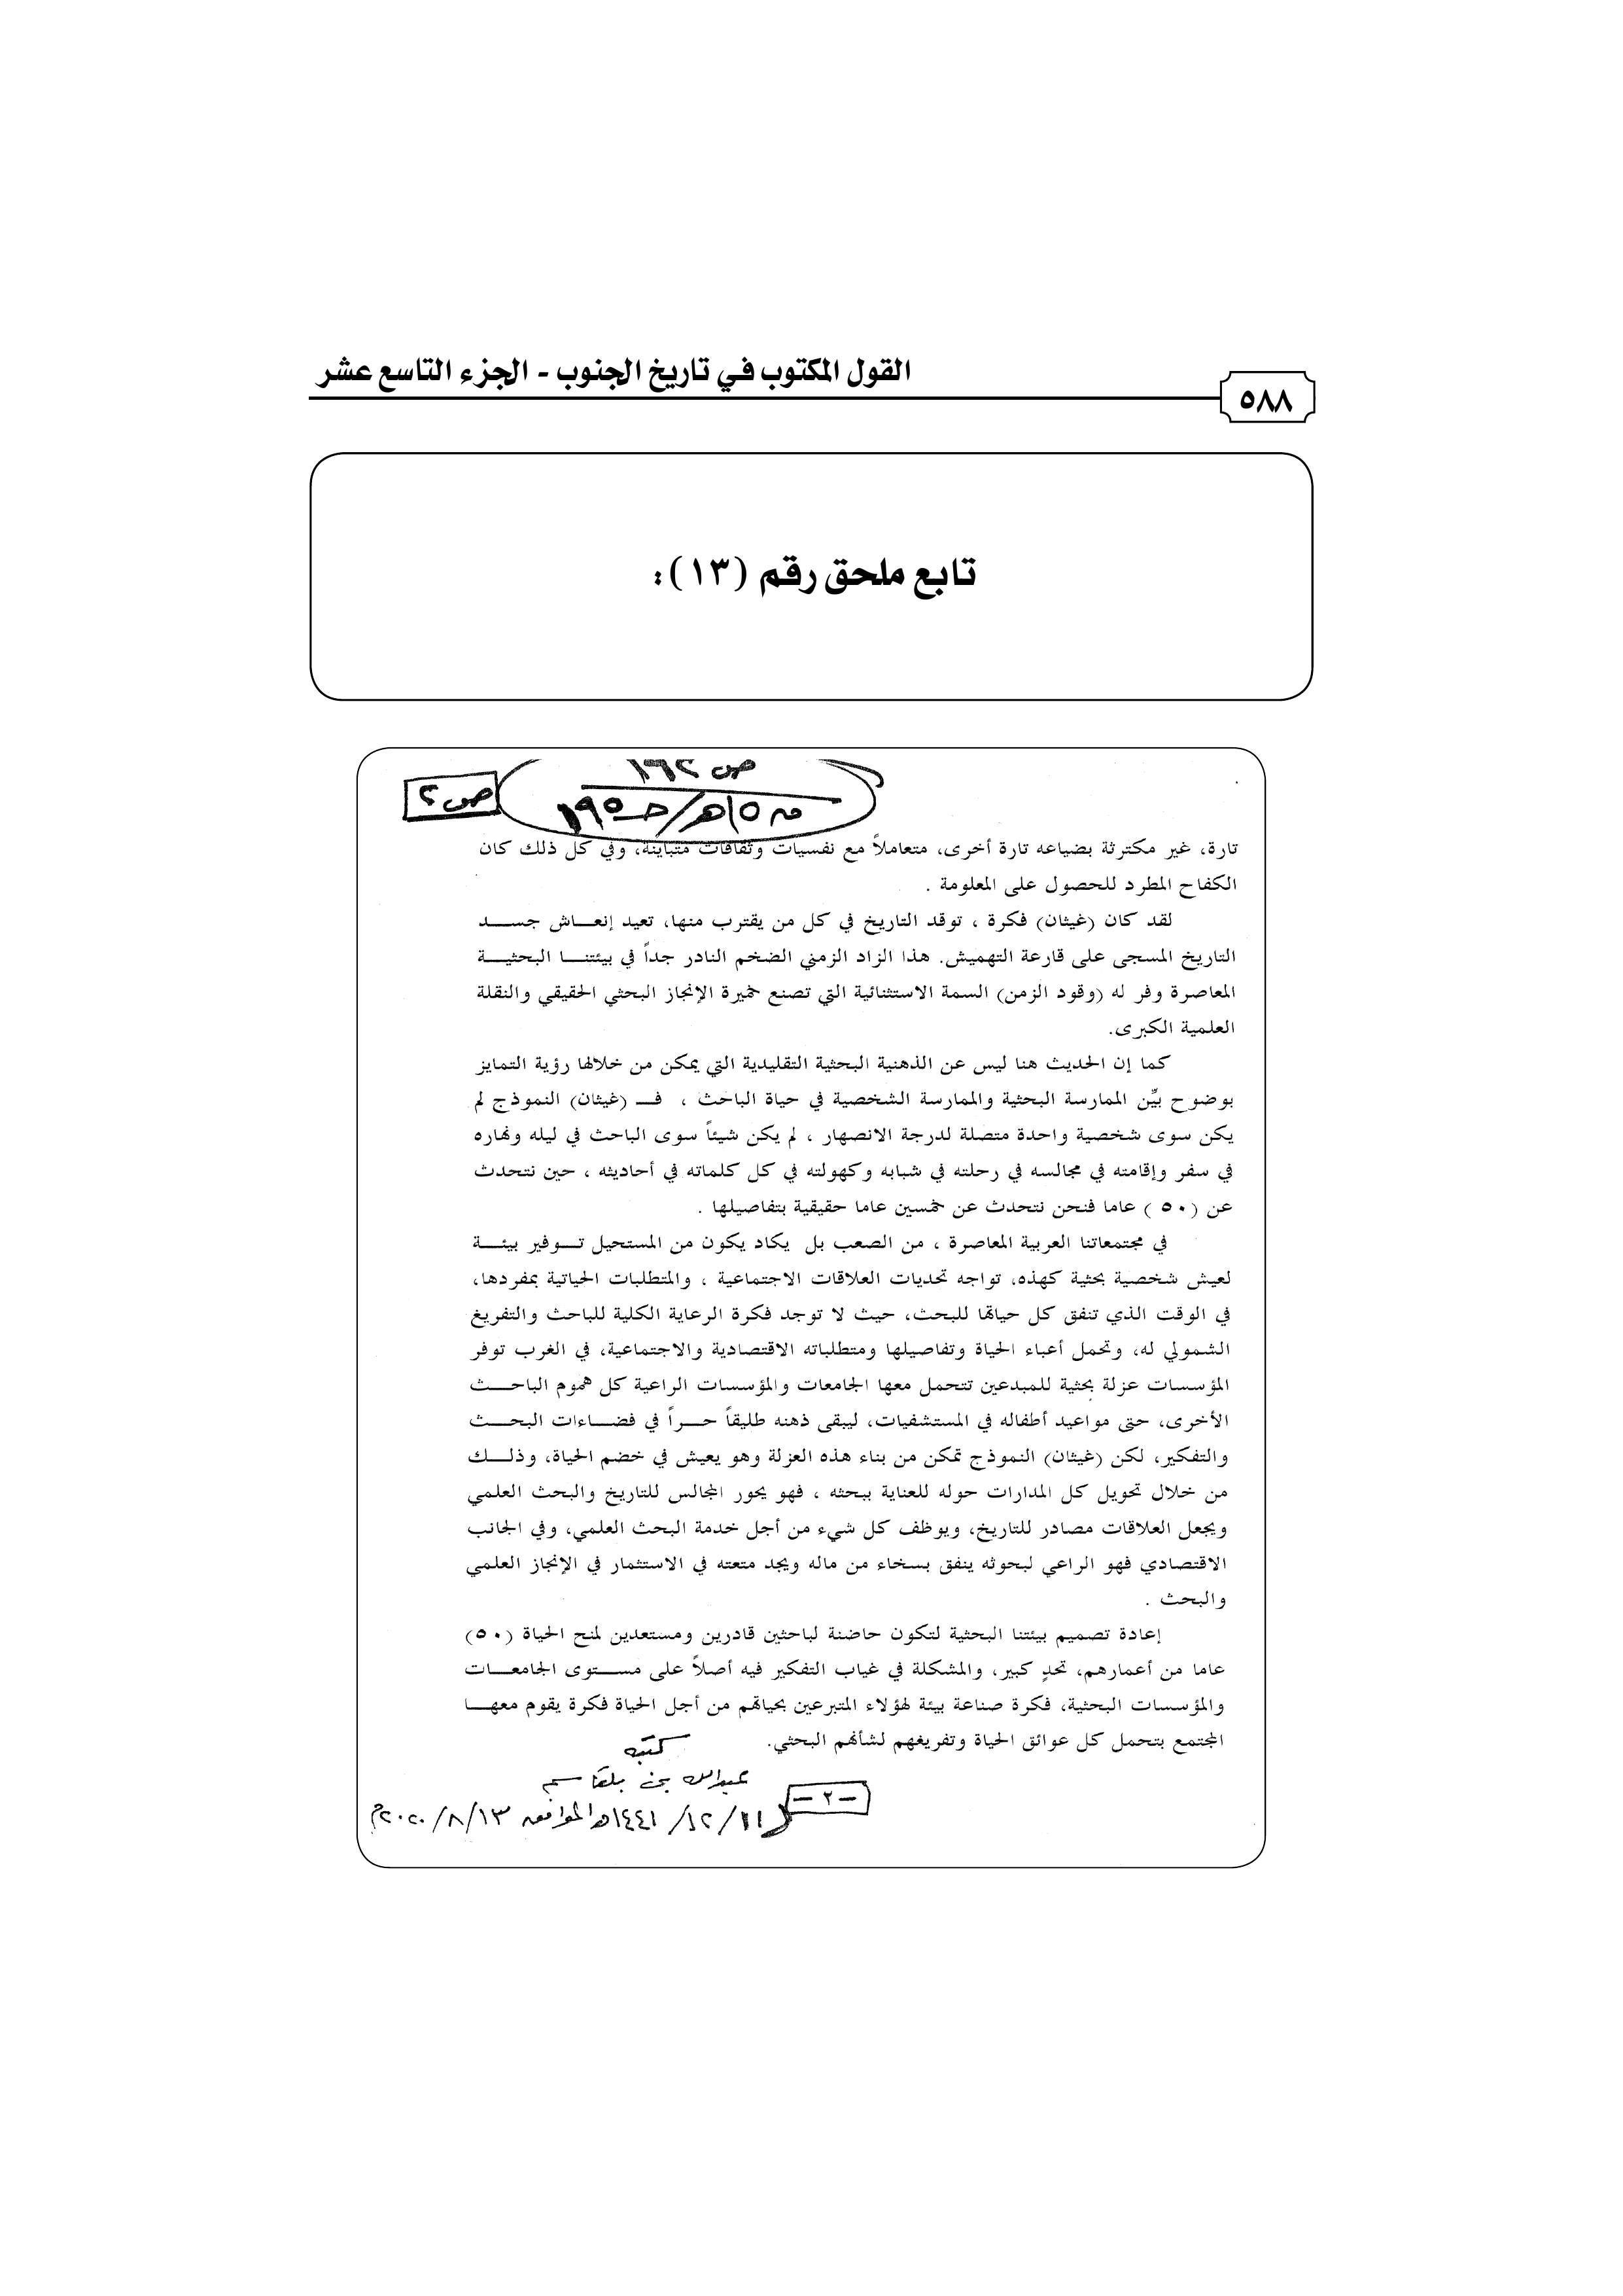 القول المكتوب في تاريخ الجنوب - الجزء التاسع عشر
٥٨٨
تابع ملحق رقم (١٣):
ص ١٦٢
ص ٢
تارة، غير مكترثة بضياعه تارة أخرى، متعاملاً مع نفسيات وثقافات متباينة، وفي كل ذلك كان
الكفاح المطرد للحصول على المعلومة .
لقد كان (غيثان) فكرة ، توقد التاريخ في كل من يقترب منها، تعيد إنعـاش جسـد
التاريخ المسجى على قارعة التهميش. هذا الزاد الزمني الضخم النادر جداً في بيئتنـا البحثيـة
المعاصرة وفر له (وقود الزمن) السمة الاستثنائية التي تصنع خميرة الإنجاز البحثي الحقيقي والنقلة
العلمية الكبرى.
كما إن الحديث هنا ليس عن الذهنية البحثية التقليدية التي يمكن من خلالها رؤية التمايز
بوضوح بيِّن الممارسة البحثية والممارسة الشخصية في حياة الباحث ، فـ (غيثان) النموذج لم
يكن سوى شخصية واحدة متصلة لدرجة الانصهار ، لم يكن شيئاً سوى الباحث في ليله ونهاره
في سفر وإقامته في مجالسه في رحلته في شبابه وكهولته في كل كلماته في أحاديثه ، حين نتحدث
عن (٥٠ ) عاما فنحن نتحدث عن خمسين عاما حقيقية بتفاصيلها .
في مجتمعاتنا العربية المعاصرة ، من الصعب بل يكاد يكون من المستحيل تـوفير بيئـة
لعيش شخصية بحثية كهذه، تواجه تحديات العلاقات الاجتماعية ، والمتطلبات الحياتية بمفردها،
في الوقت الذي تنفق كل حياتها للبحث، حيث لا توجد فكرة الرعاية الكلية للباحث والتفريغ
الشمولي له، وتحمل أعباء الحياة وتفاصيلها ومتطلباته الاقتصادية والاجتماعية، في الغرب توفر
المؤسسات عزلة بحثية للمبدعين تتحمل معها الجامعات والمؤسسات الراعية كل هموم الباحـث
الأخرى، حتى مواعيد أطفاله في المستشفيات، ليبقى ذهنه طليقاً حـراً في فضـاءات البحـث
والتفكير، لكن (غيثان) النموذج تمكن من بناء هذه العزلة وهو يعيش في خضم الحياة، وذلـك
من خلال تحويل كل المدارات حوله للعناية ببحثه ، فهو يحور المجالس للتاريخ والبحث العلمي
ويجعل العلاقات مصادر للتاريخ، ويوظف كل شيء من أجل خدمة البحث العلمي، وفي الجانب
الاقتصادي فهو الراعي لبحوثه ينفق بسخاء من ماله ويجد متعته في الاستثمار في الإنجاز العلمي
والبحث .
إعادة تصميم بيئتنا البحثية لتكون حاضنة لباحثين قادرين ومستعدين لمنح الحياة (٥٠)
عاما من أعمارهم، تحدٍ كبير، والمشكلة في غياب التفكير فيه أصلاً على مسـتوى الجامعـات
والمؤسسات البحثية، فكرة صناعة بيئة لهؤلاء المتبرعين بحياتهم من أجل الحياة فكرة يقوم معهـا
المجتمع بتحمل كل عوائق الحياة وتفريغهم لشأنهم البحثي.
كتبه
عبدالله بن بلقاسم
-٢-
١١/ ١٢/ ١٤٤١هـ الموافق ١٣/ ٨/ ٢٠٢٠م